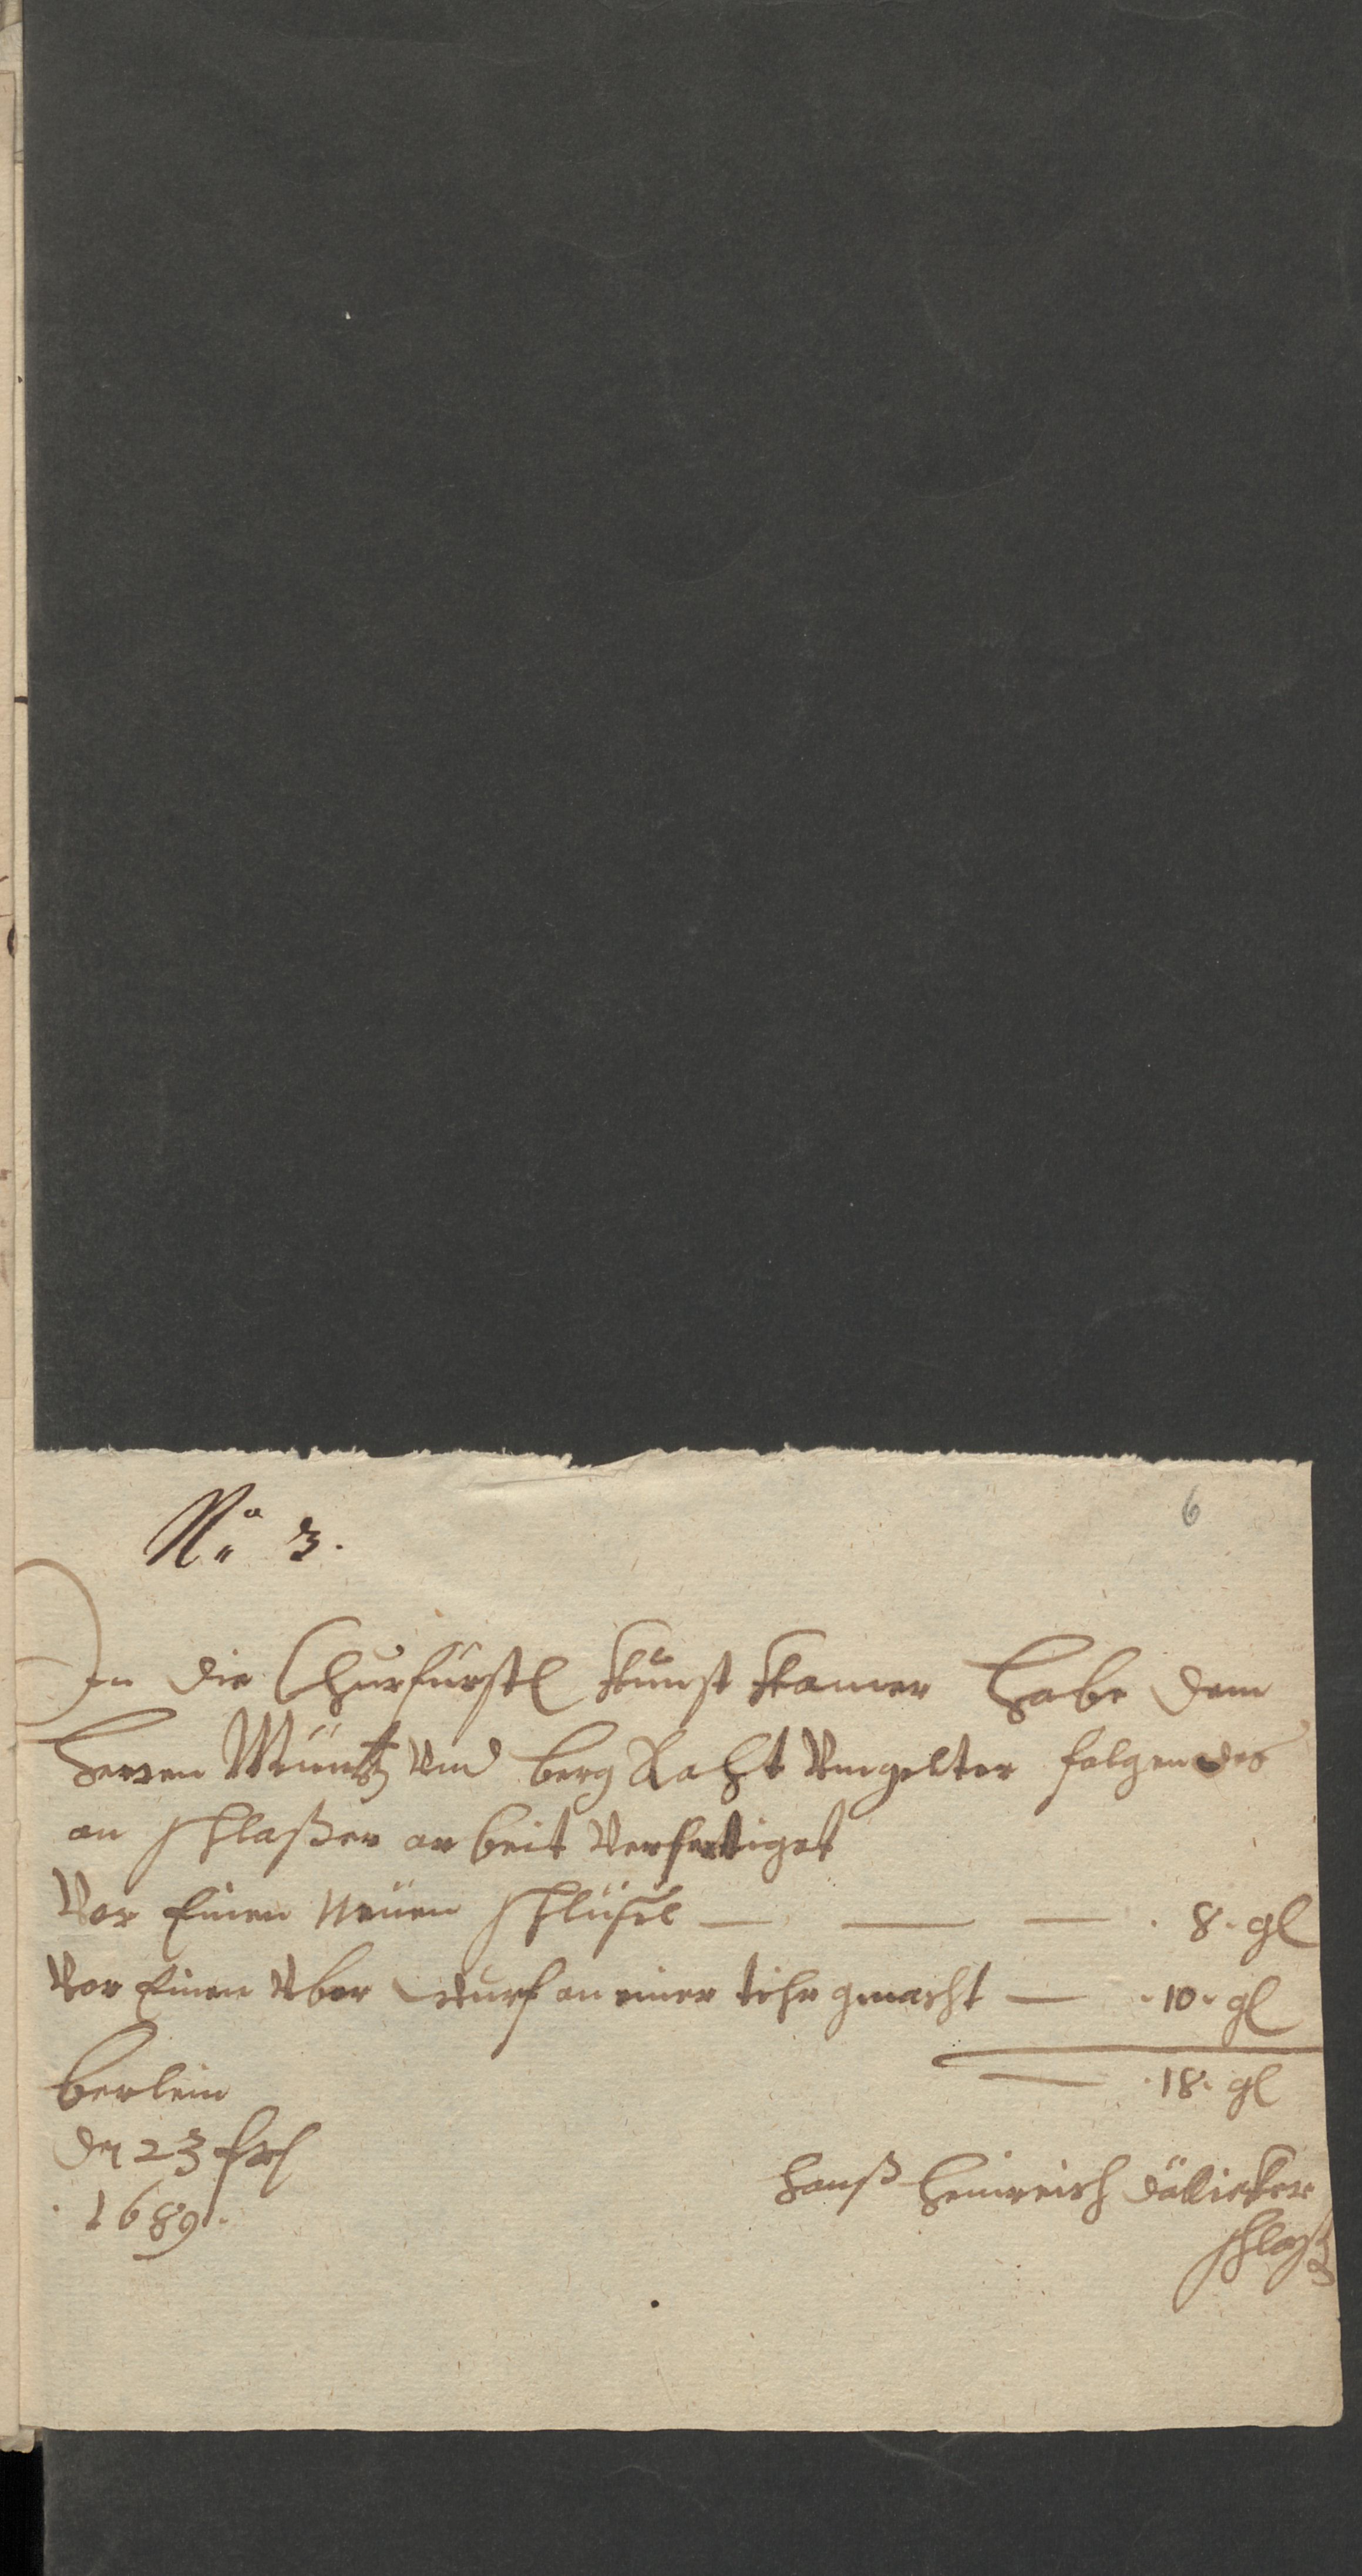 No 3.
6
In die Churfürstl Kunst Kamer habe dem
herren Müntz Und berg Raht Ungelter folgendes
an schlaßer arbeit Verfertiget
Vor Einen Neuen schlüsel — — — 8. gl
Vor Einen Uber wurf an einer tihr gmacht — 10. gl
— 18. gl
berlein
den 23
1689.
Hanß Heinrich Dällicker